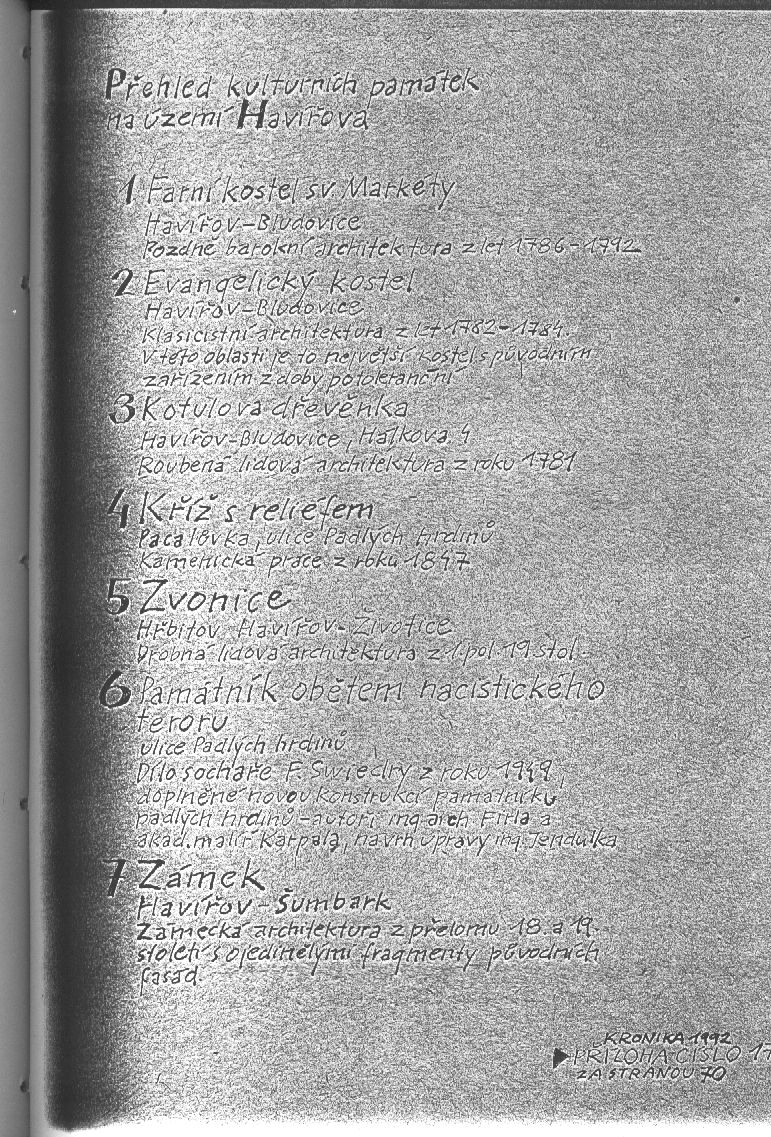 Přehled kulturních památek
na území Havířova
1 Farní kostel sv. Markéty
Havířov-Bludovice
Pozdně barokní architektura z let 1786-1792
2 Evangelický kostel
Havířov-Bludovice
Klasicistní architektura z let 1782-1784.
V této oblasti je to největší kostel s původním
zařízením z doby potoleranční
3 Kotulova dřevěnka
Havířov-Bludovice, Hálkova 4
Roubená lidová architektura z roku 1781
4 Kříž s reliéfem
Pacalovka, ulice Padlých hrdinů
Kamenická práce z roku 1847
5 Zvonice
Hřbitov Havířov-Životice
Drobná lidová architektura z 1. pol 19. stol.
6 Památník obětem nacistického
teroru
ulice Padlých hrdinů
Dílo sochaře F. Swiedry z roku 1949,
doplněné novou konstrukcí památníku
padlých hrdinů - autoři ing. arch Firla a
akad. malíř Karpala, návrh úpravy ing. Jendulka
7 Zámek
Havířov-Šumbark
Zámecká architektura z přelomu 18. a 19.
století s ojedinělými fragmenty původních
fasád.
KRONIKA 1992
PŘÍLOHA ČÍSLO 17
ZA STRANOU 70